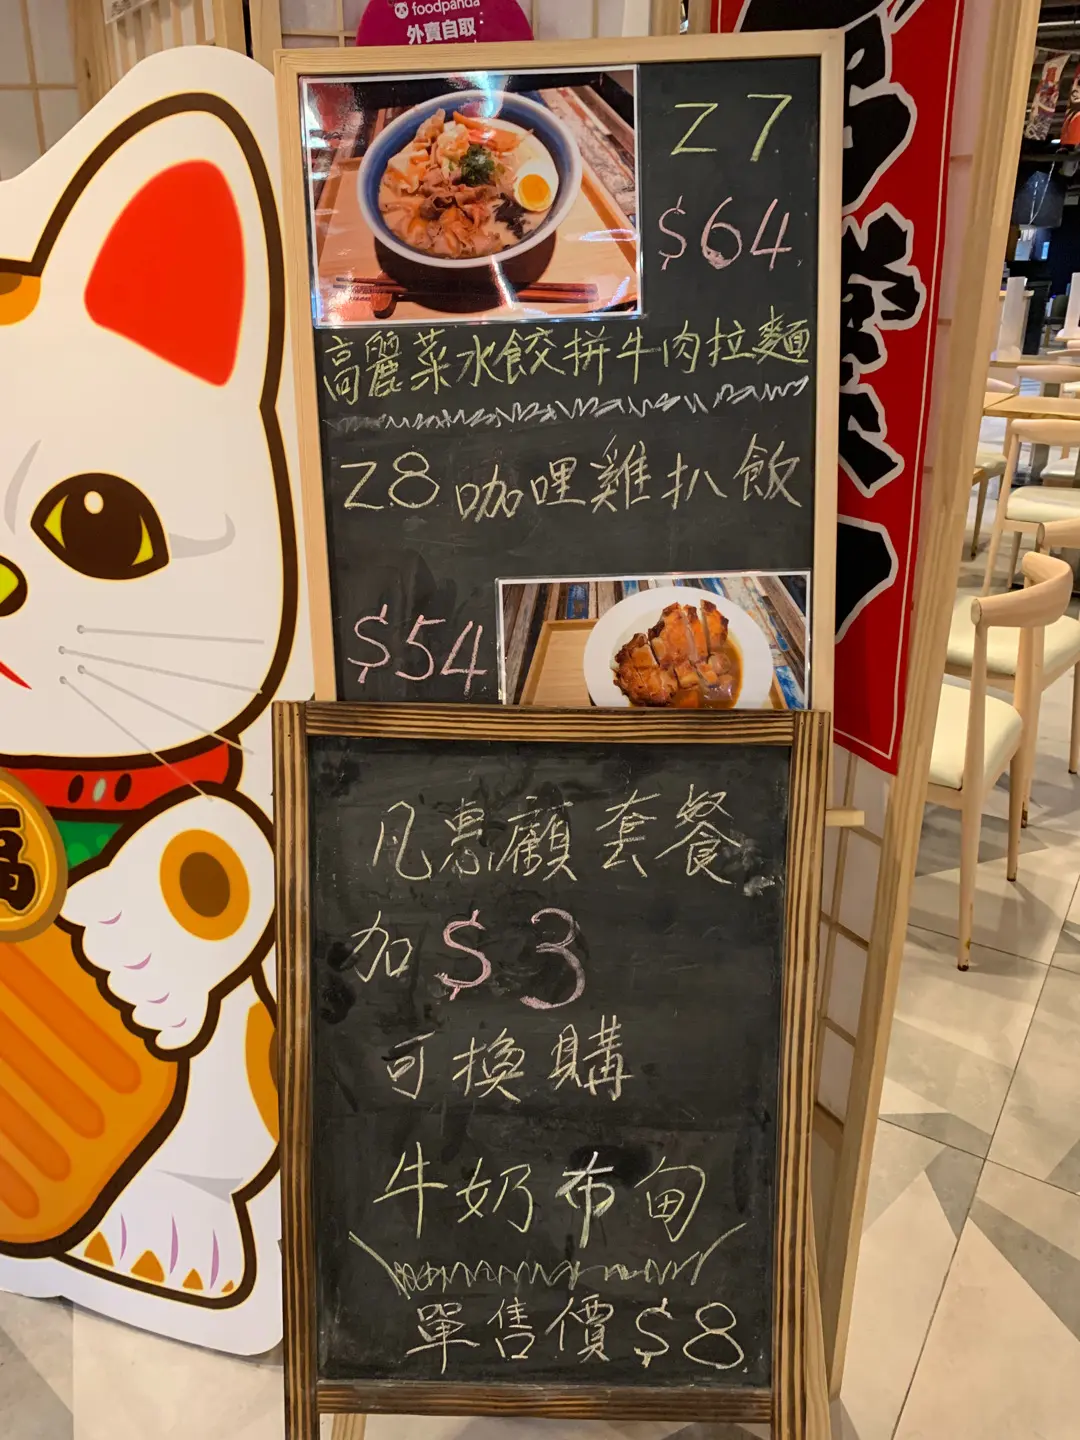 foodpanda
外賣自取
Z7
$64
高麗菜水餃拼牛肉拉麵
Z8 咖哩雞扒飯
$54
凡惠顧套餐
加 $3
可換購
牛奶布甸
單售價 $8
福